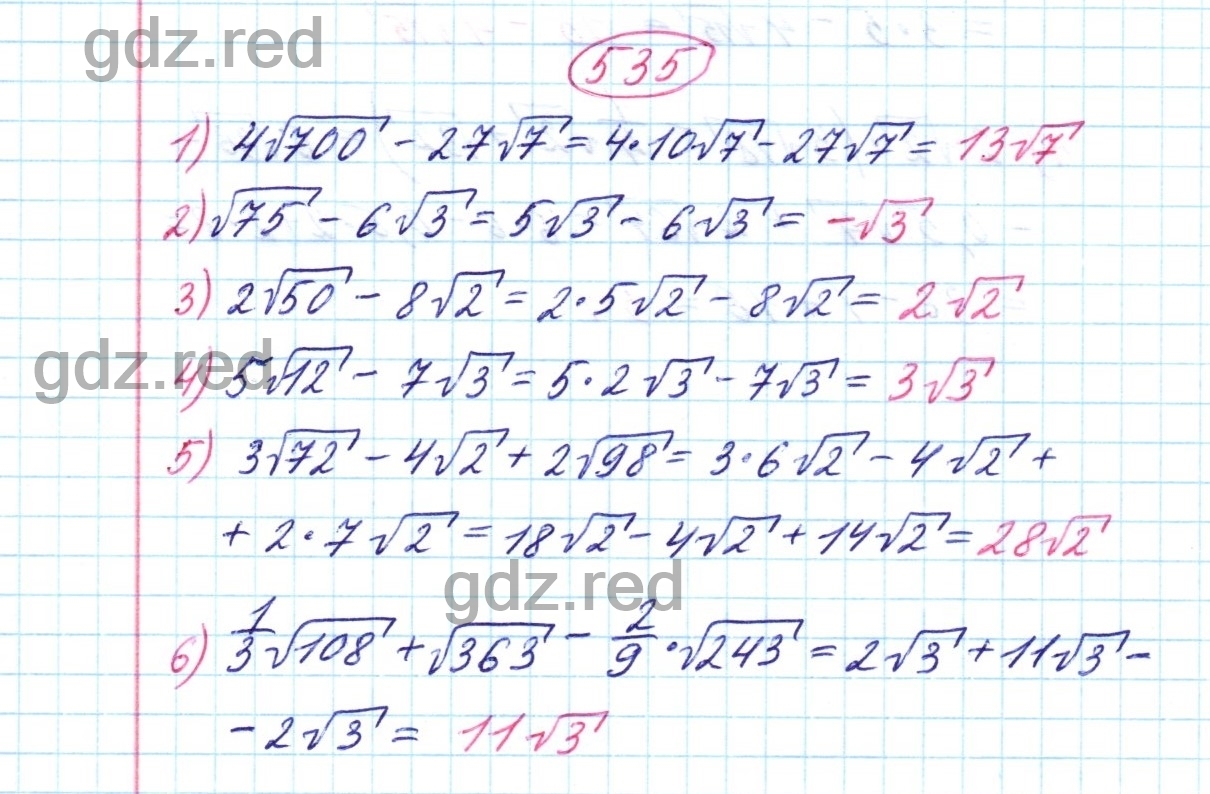 gdz.red
535
1) 4√700 - 27√7 = 4·10√7 - 27√7 = 13√7
2) √75 - 6√3 = 5√3 - 6√3 = -√3
3) 2√50 - 8√2 = 2·5√2 - 8√2 = 2√2
gdz.red
4) 5√12 - 7√3 = 5·2√3 - 7√3 = 3√3
5) 3√72 - 4√2 + 2√98 = 3·6√2 - 4√2 +
+ 2·7√2 = 18√2 - 4√2 + 14√2 = 28√2
gdz.red
6) 1/3√108 + √363 - 2/9·√243 = 2√3 + 11√3 -
- 2√3 = 11√3